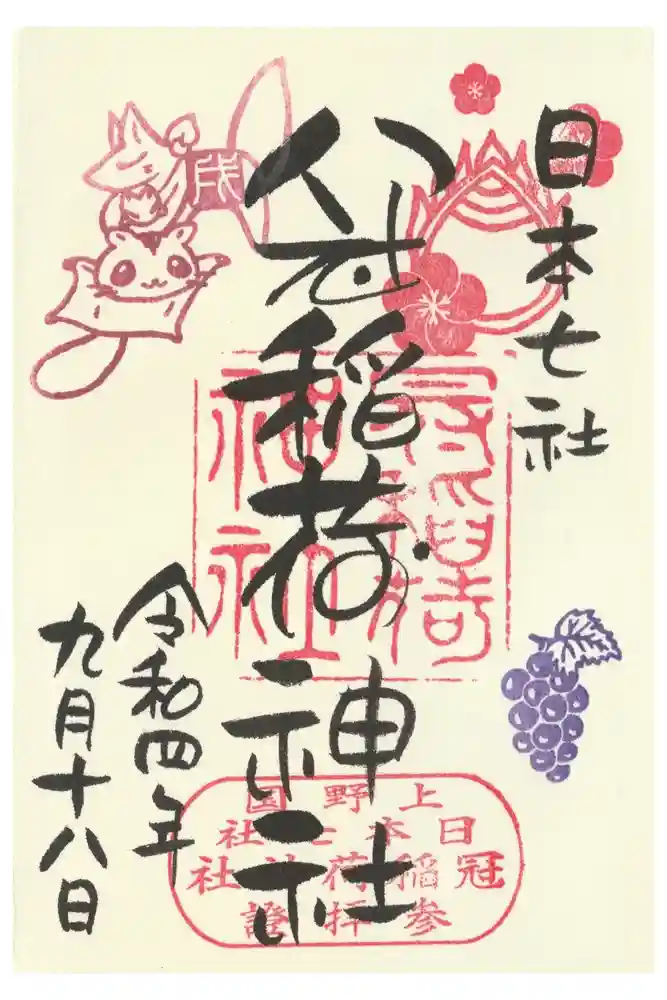 日本七社
冠稲荷神社
令和四年
九月十八日
冠稲荷
神社
上野国
日本七社
冠稲荷神社
参拝證